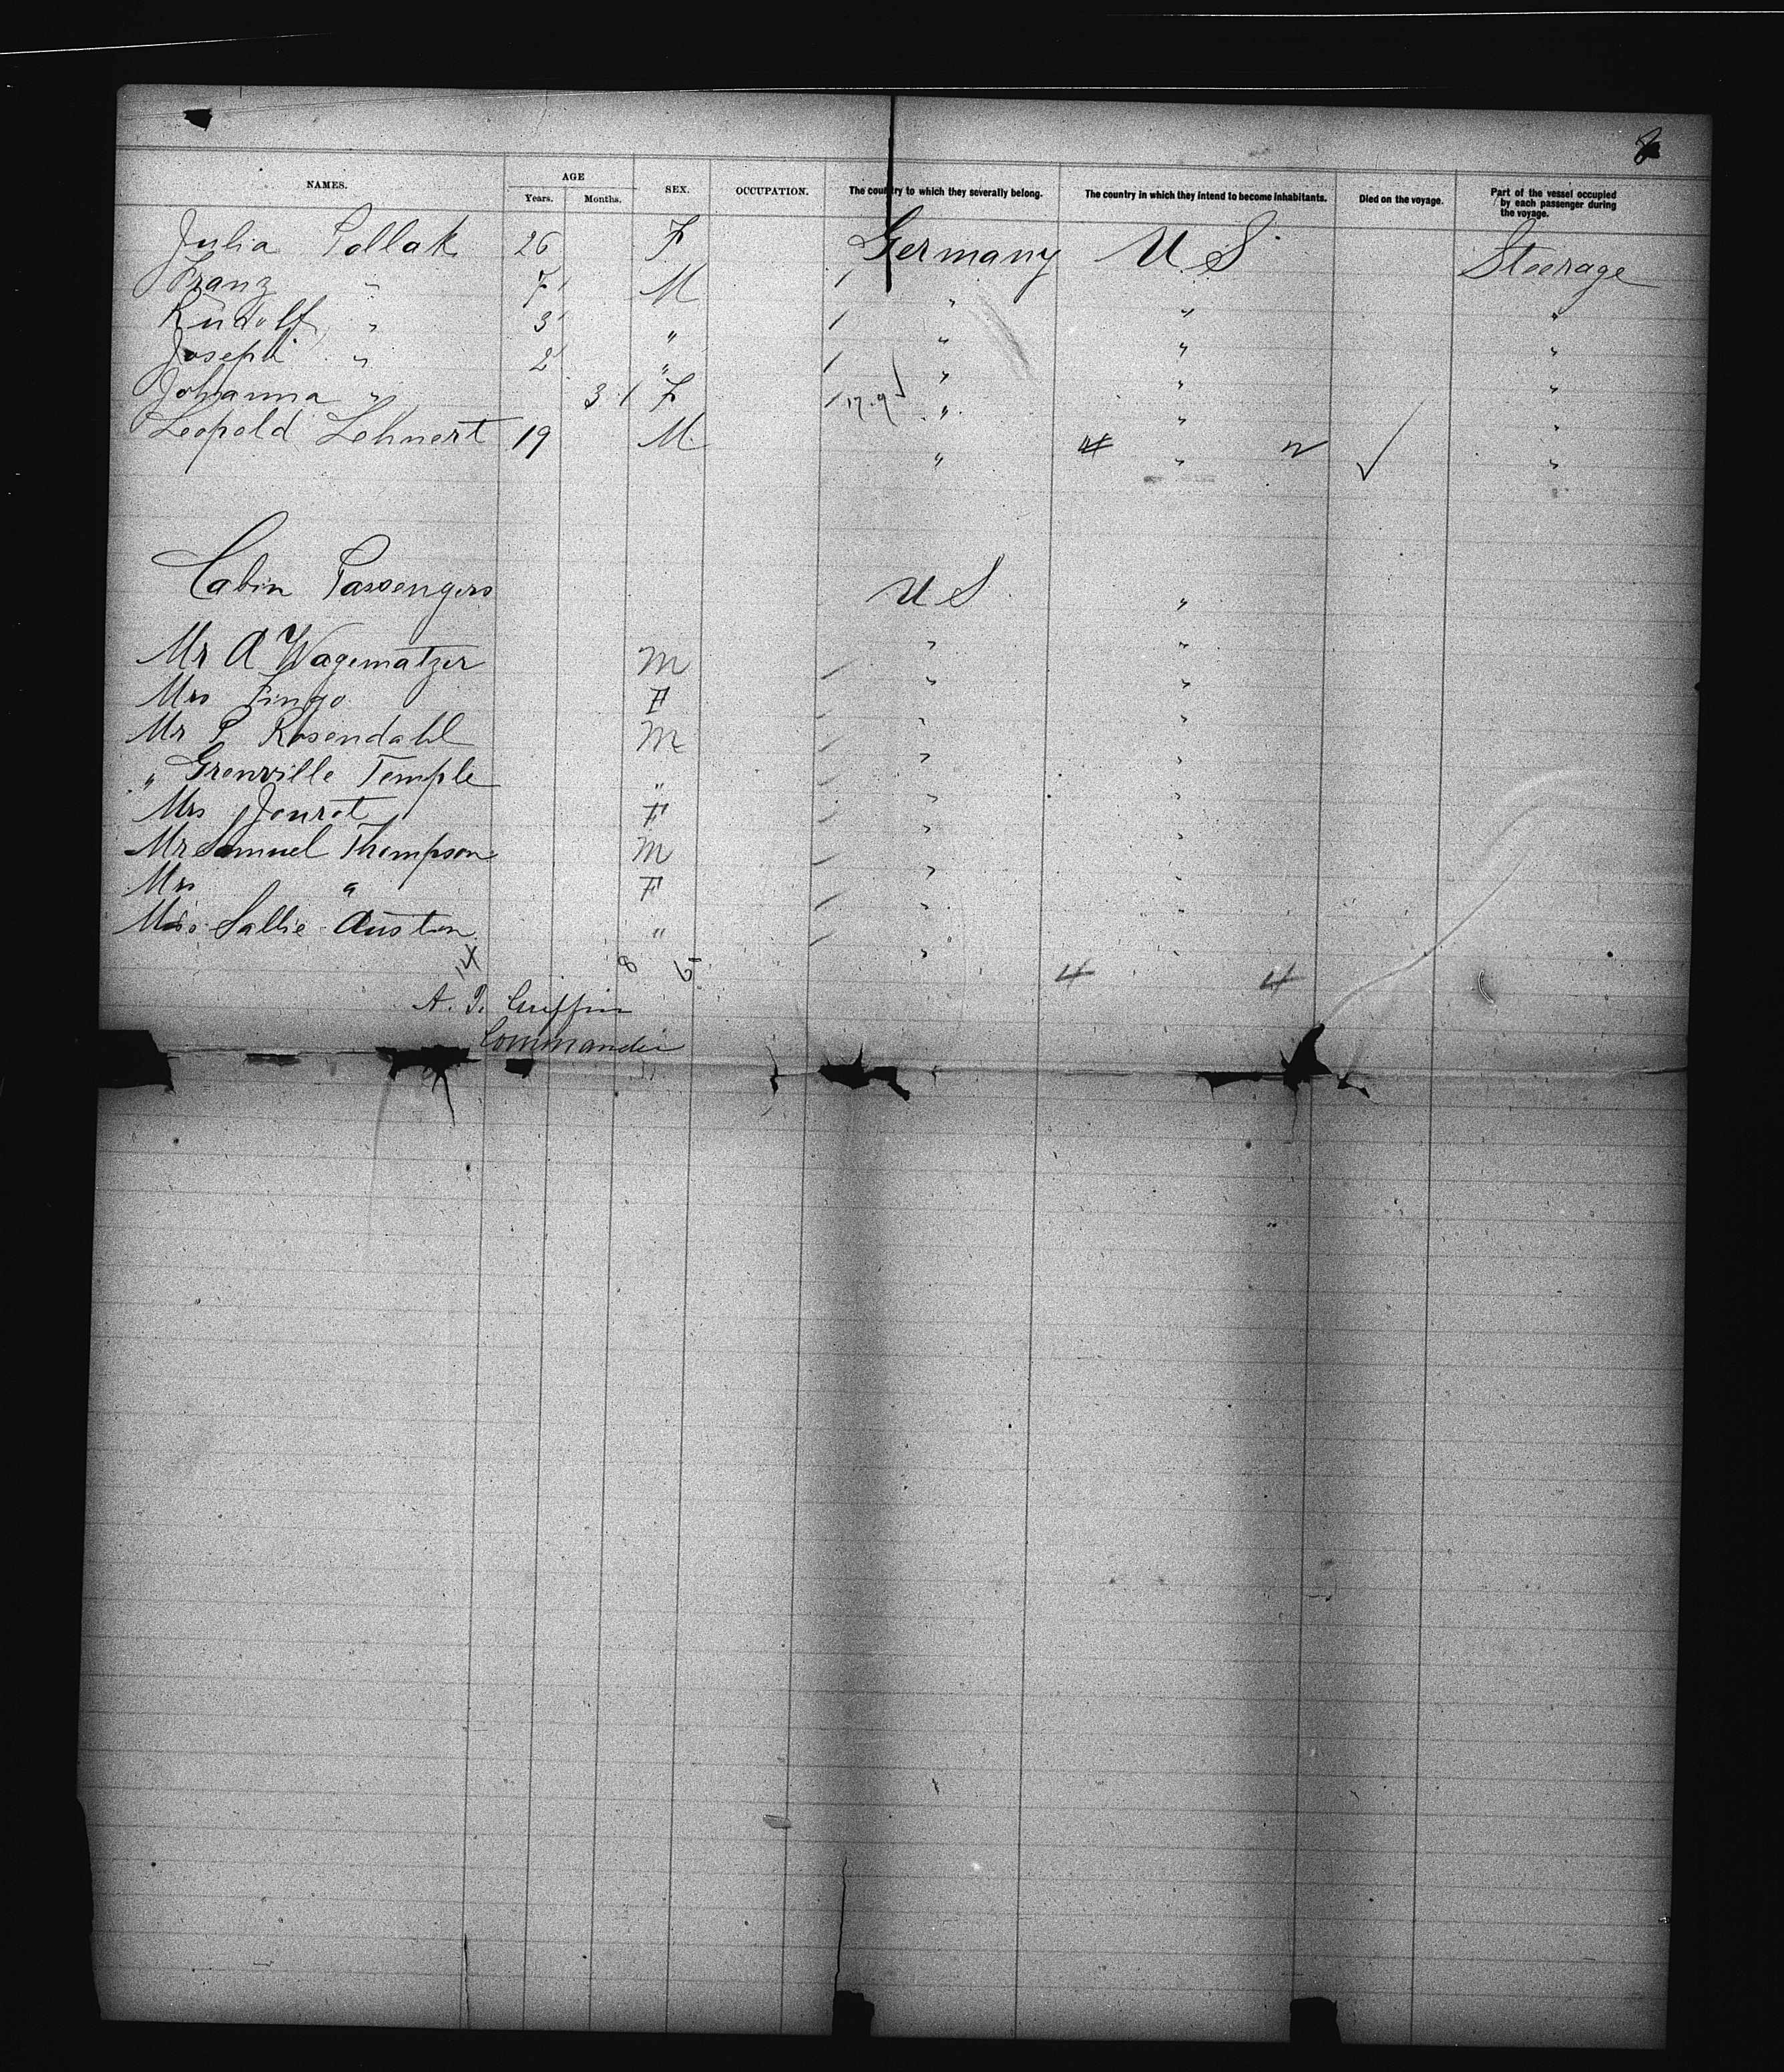 NAMES. AGE Years. Months. SEX. OCCUPATION. The country to which they severally belong. The country in which they intend to become inhabitants. Died on the voyage. Part of the vessel occupied by each passenger during the voyage.
Julia Pollak 26 F Germany U S Steerage
Franz " 7 M " " "
Rudolf " 3 " " " "
Joseph " 2 " " " "
Johanna " 3 F " " "
Leopold Lehnert 19 M " " "
Cabin Passengers U S "
Mr A Wagematzer M " "
Mrs Fingo F " "
Mr P Rosendahl M " "
" Grenville Temple " " "
Mrs Jouret F " "
Mr Samuel Thompson M " "
Mrs " F " "
Miss Sallie Austen " " "
14 8 4 4
A. T. Griffin
Commander